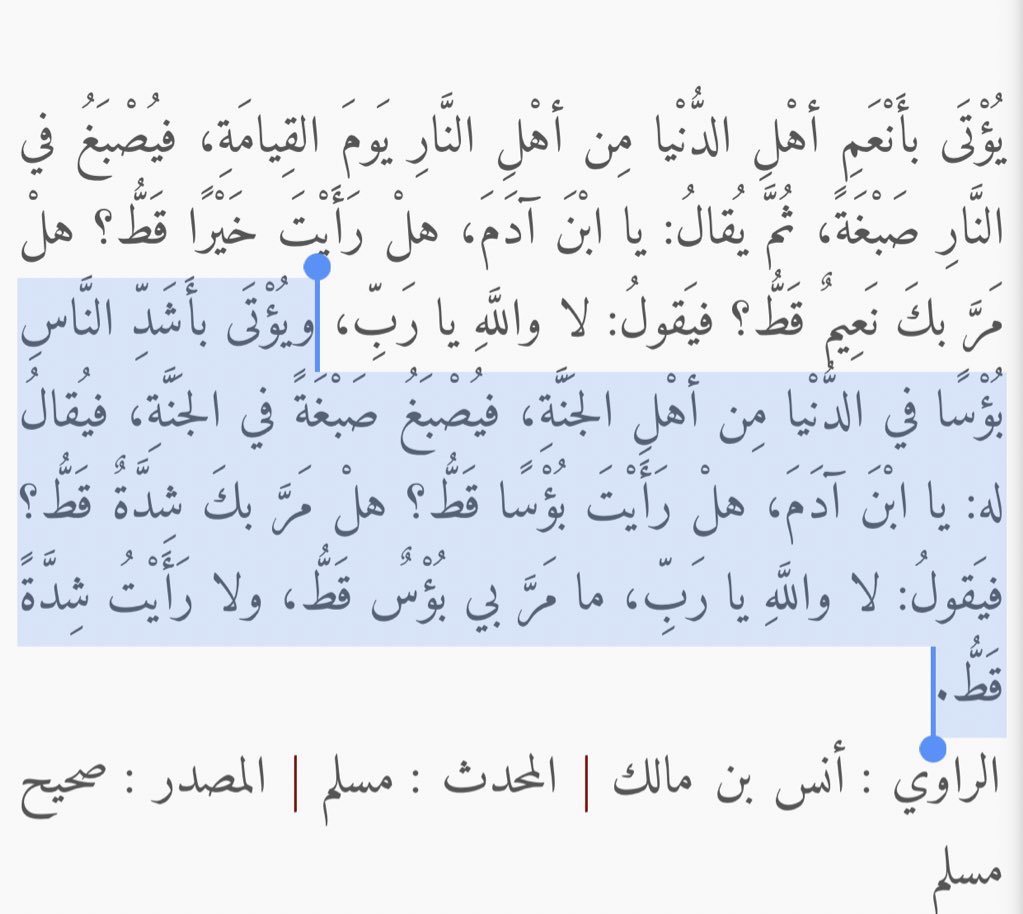 يُؤْتَى بأَنْعَمِ أهْلِ الدُّنْيا مِن أهْلِ النَّارِ يَومَ القِيامَةِ، فيُصْبَغُ في
النَّارِ صَبْغَةً، ثُمَّ يُقالُ: يا ابْنَ آدَمَ، هلْ رَأَيْتَ خَيْرًا قَطُّ؟ هلْ
مَرَّ بكَ نَعِيمٌ قَطُّ؟ فيَقولُ: لا واللَّهِ يا رَبِّ، ويُؤْتَى بأَشَدِّ النَّاسِ
بُؤْسًا في الدُّنْيا مِن أهْلِ الجَنَّةِ، فيُصْبَغُ صَبْغَةً في الجَنَّةِ، فيُقالُ
له: يا ابْنَ آدَمَ، هلْ رَأَيْتَ بُؤْسًا قَطُّ؟ هلْ مَرَّ بكَ شِدَّةٌ قَطُّ؟
فيَقولُ: لا واللَّهِ يا رَبِّ، ما مَرَّ بي بُؤْسٌ قَطُّ، ولا رَأَيْتُ شِدَّةً
قَطُّ.
الراوي : أنس بن مالك | المحدث : مسلم | المصدر : صحيح
مسلم